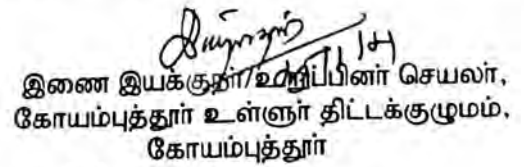 இணை இயக்குநர்/உறுப்பினர் செயலர்,
கோயம்புத்தூர் உள்ளுர் திட்டக்குழுமம்,
கோயம்புத்தூர்